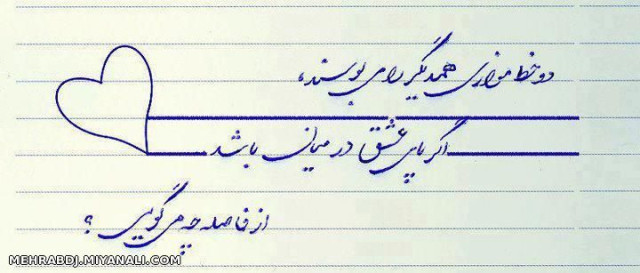 دو خط موازی همدیگر را می بوسند،
اگر پای عشق در میان باشد
از فاصله چه می گویی ؟
MEHRABDJ.MIYANALI.COM